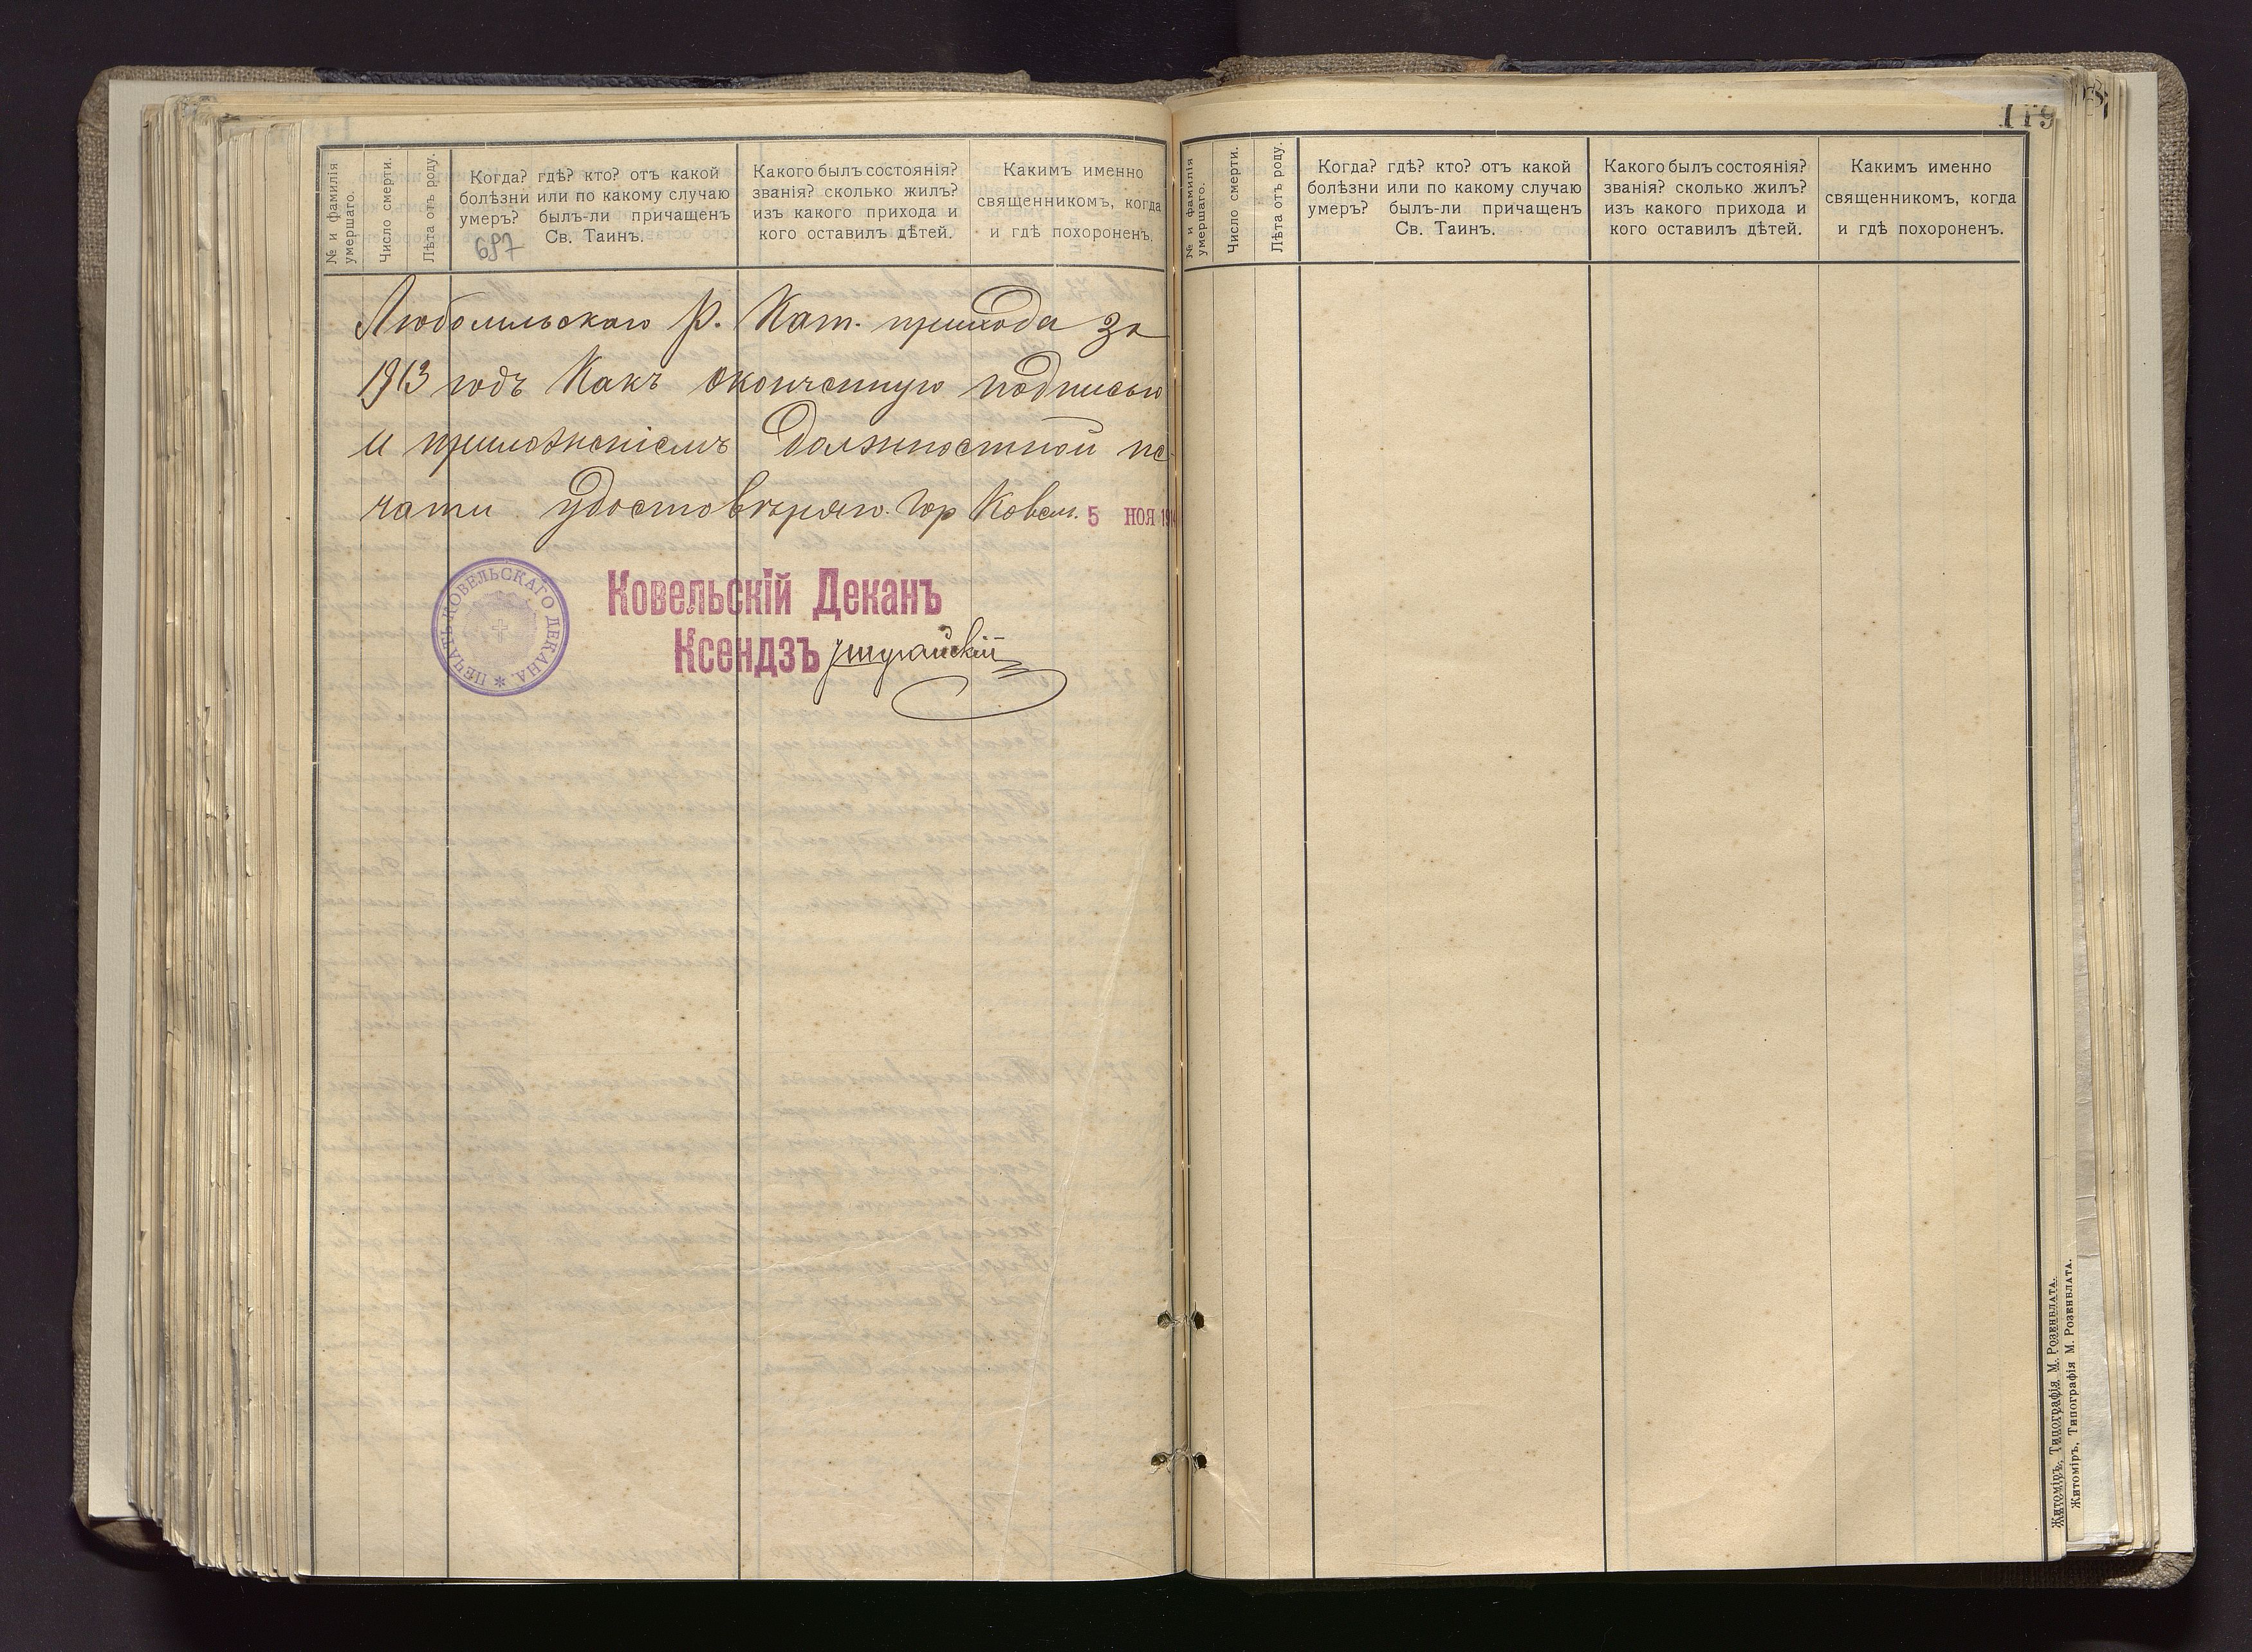 № и фамилія
умершаго.
Число смерти.
Лѣта отъ роду.
Когда? гдѣ? кто? отъ какой
болѣзни или по какому случаю
умеръ? былъ-ли причащенъ
Св. Таинъ.
687
Какого былъ состоянія?
званія? сколько жилъ?
изъ какого прихода и
кого оставилъ дѣтей.
Какимъ именно
священникомъ, когда
и гдѣ похороненъ.
Любомльскаго Р. Кат. прихода за
1913 годъ Какъ оконченную подписью
и приложеніемъ должностной пе-
чати удостовѣряю. Гор Ковель. 5 НОЯ 191
ПЕЧАТЬ КОВЕЛЬСКАГО ДЕКАНА.
Ковельскій Деканъ
Ксендзъ
179
№ и фамилія
умершаго.
Число смерти.
Лѣта отъ роду.
Когда? гдѣ? кто? отъ какой
болѣзни или по какому случаю
умеръ? былъ-ли причащенъ
Св. Таинъ.
Какого былъ состоянія?
званія? сколько жилъ?
изъ какого прихода и
кого оставилъ дѣтей.
Какимъ именно
священникомъ, когда
и гдѣ похороненъ.
Житоміръ, Типографія М. Розенблата.
Житоміръ, Типографія М. Розенблата.